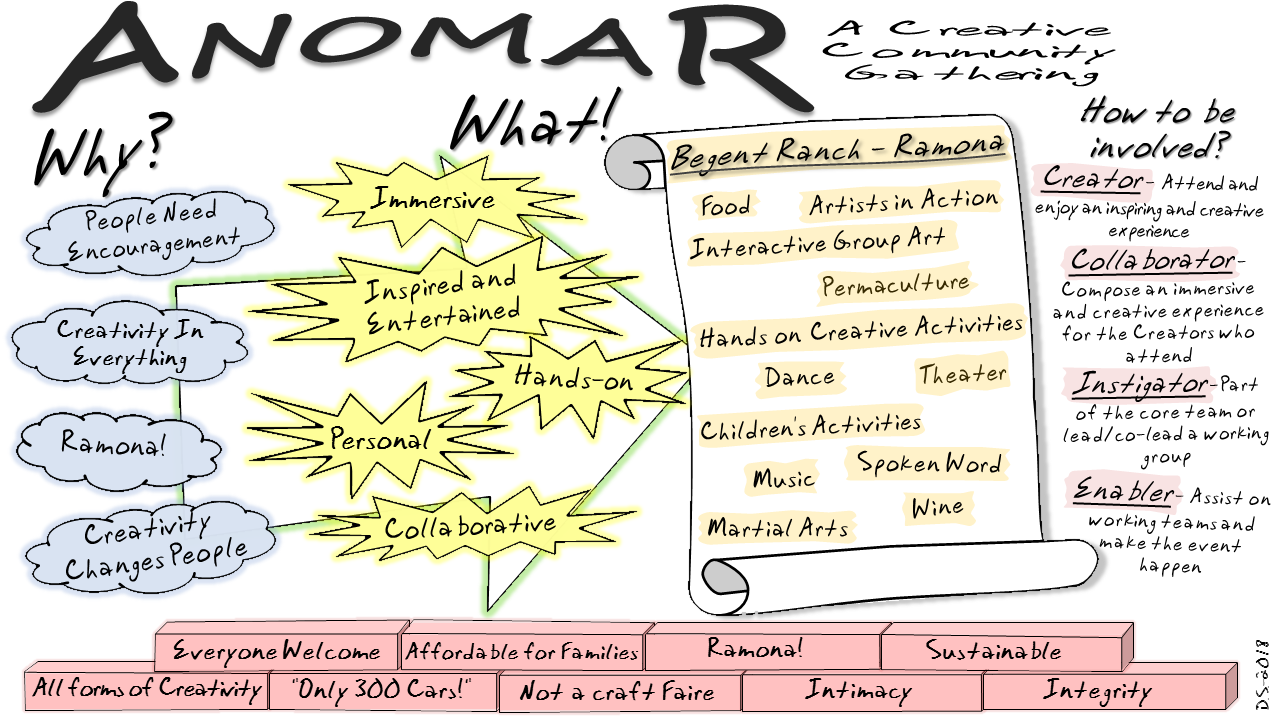 ANOMAR
A Creative
Community
Gathering
Why?
People Need
Encouragement
Creativity In
Everything
Ramona!
Creativity
Changes People
What!
Immersive
Inspired and
Entertained
Hands-on
Personal
Collaborative
Begent Ranch – Ramona
Food
Artists in Action
Interactive Group Art
Permaculture
Hands on Creative Activities
Dance
Theater
Children's Activities
Music
Spoken Word
Wine
Martial Arts
How to be
involved?
Creator- Attend and
enjoy an inspiring and creative
experience
Collaborator-
Compose an immersive
and creative experience
for the Creators who
attend
Instigator-Part
of the core team or
lead/co-lead a working
group
Enabler- Assist on
working teams and
make the event
happen
Everyone Welcome
Affordable for Families
Ramona!
Sustainable
All forms of Creativity
"Only 300 Cars!"
Not a craft Faire
Intimacy
Integrity
DS-2018